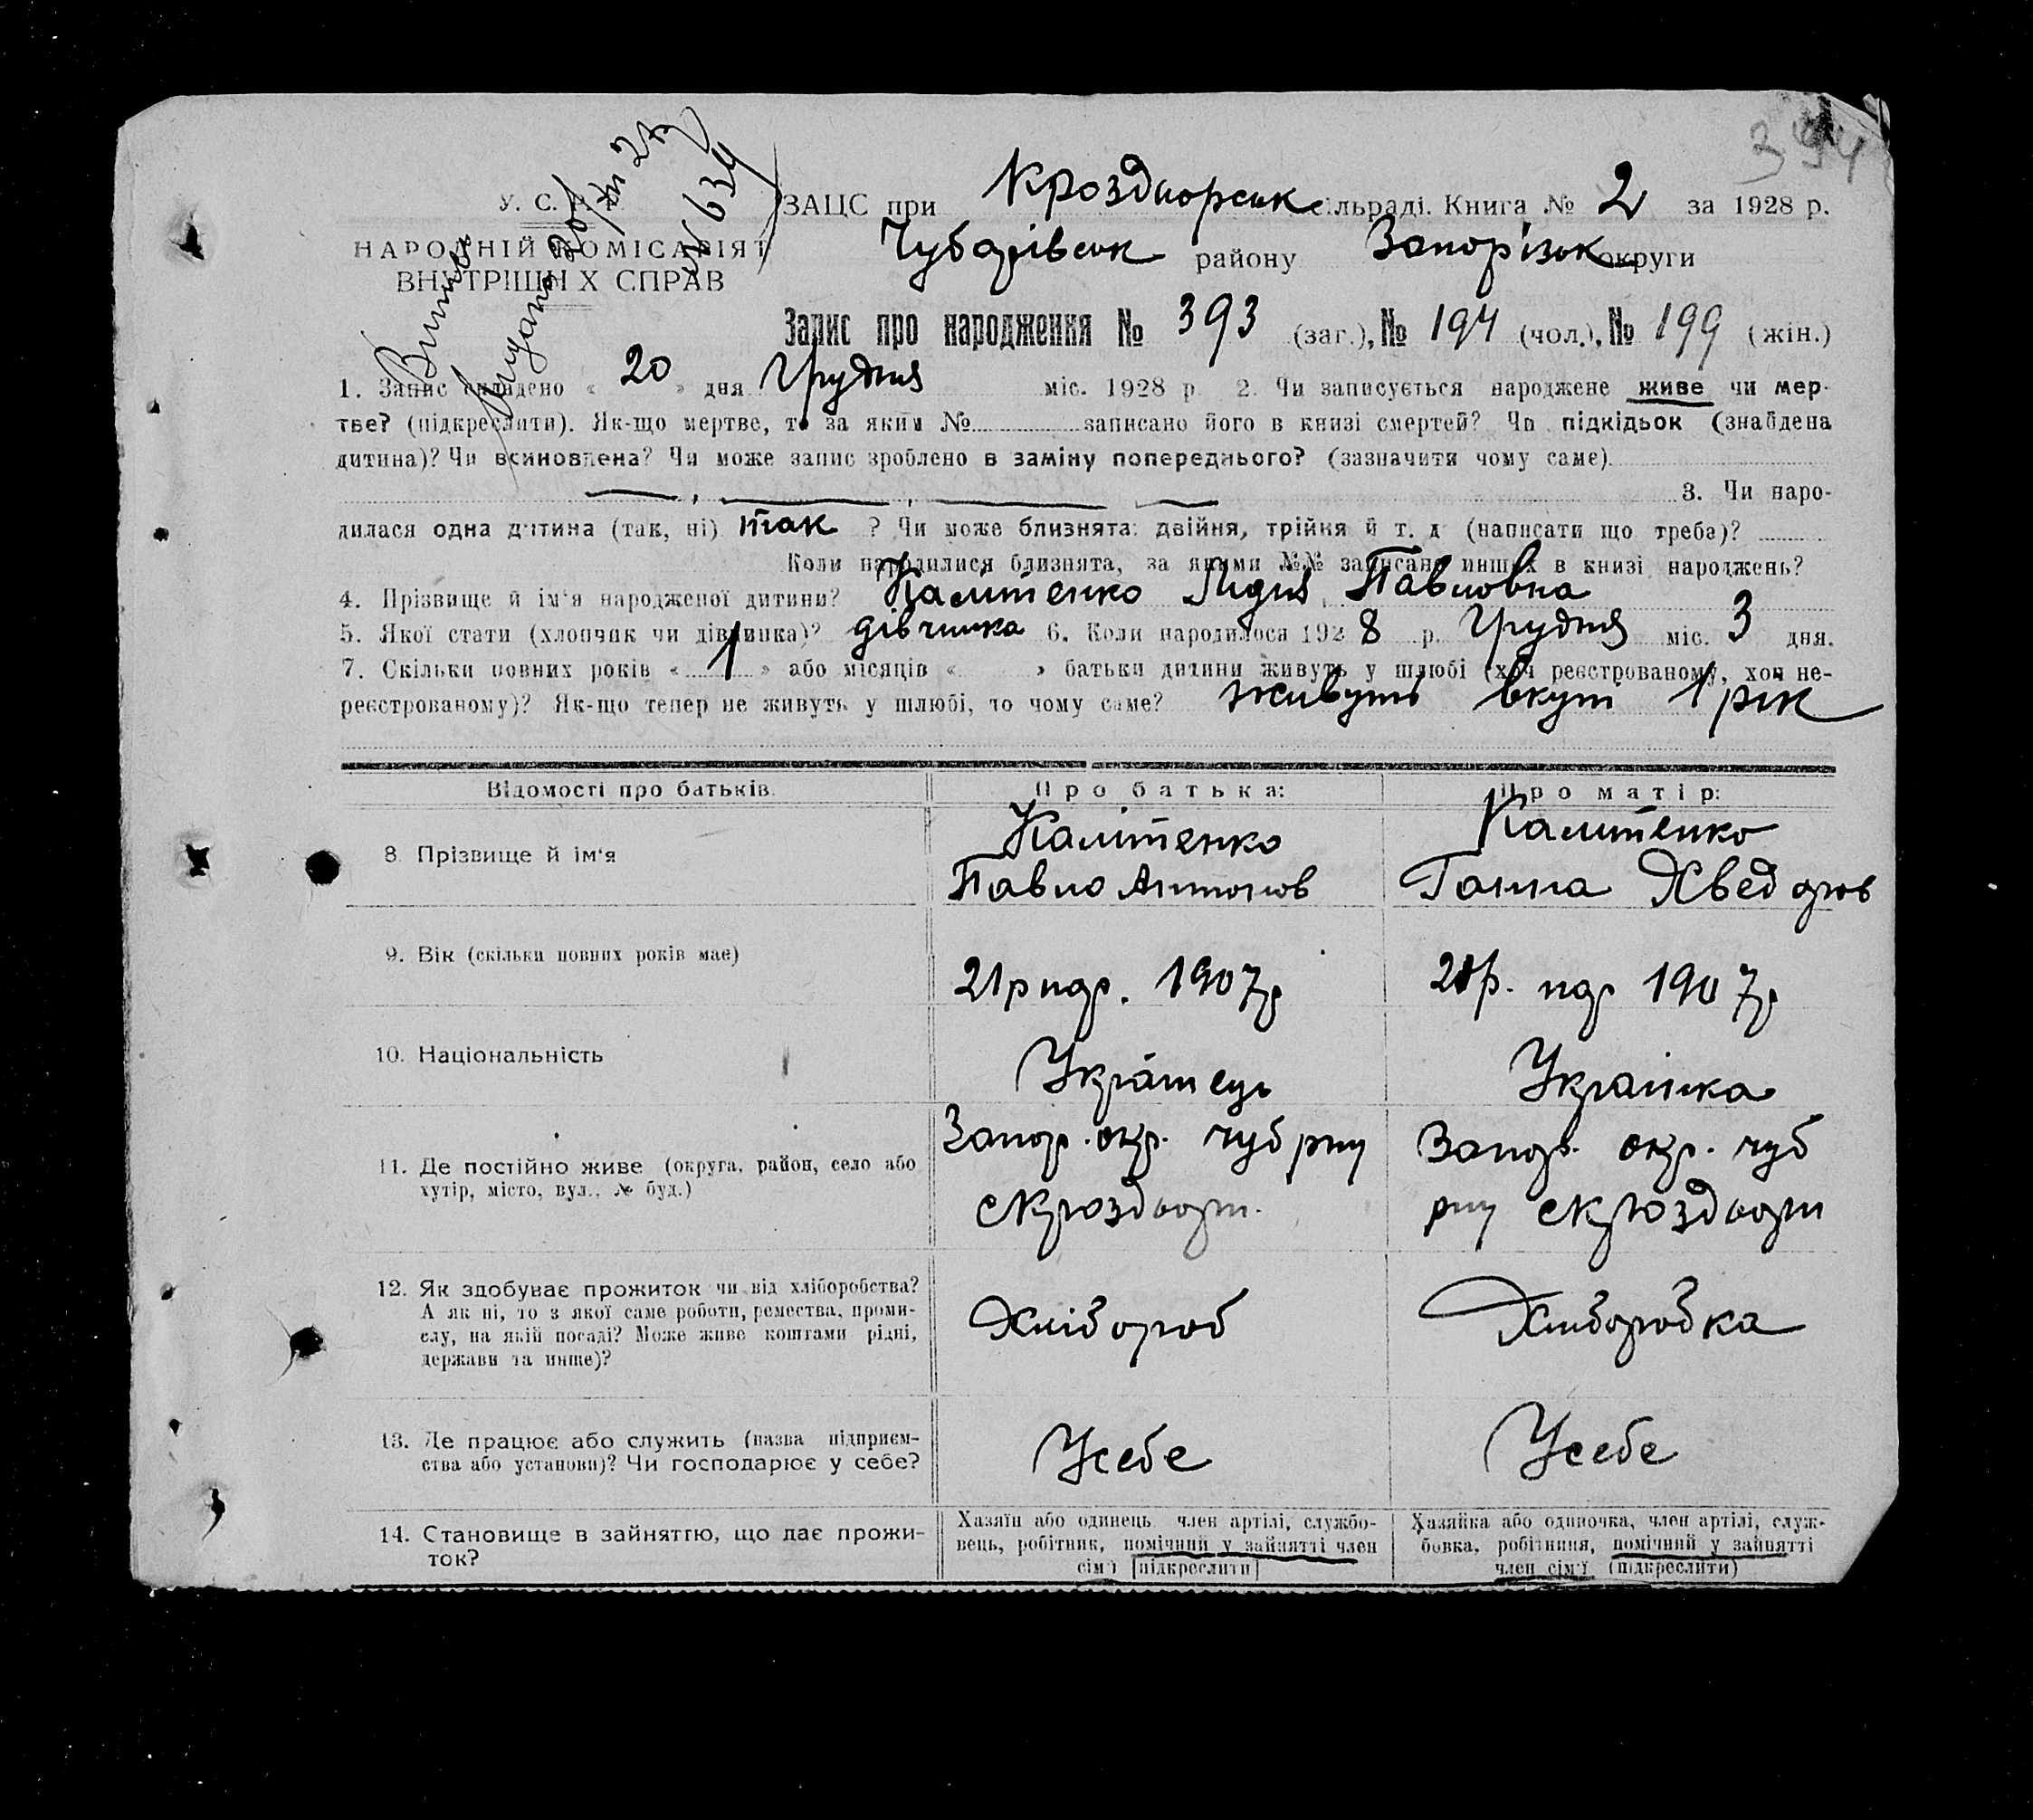 394
У. С. Р. Р.
НАРОДНІЙ КОМІСАРІЯТ
ВНУТРІШНІХ СПРАВ
№ 634
ЗАЦС при Крозднорськ сільраді. Книга № 2 за 1928 р.
Чубарівськ району Запорізьк округи
Запис про народження № 393 (заг.), № 194 (чол.), № 199 (жін.)
1. Запис складено « 20 » дня Грудня міс. 1928 р. 2. Чи записується народжене живе чи мер-
тве? (підкреслити). Як-що мертве, то за яким № записано його в книзі смертей? Чи підкідьок (знайдена
дитина)? Чи всиновлена? Чи може запис зроблено в заміну попереднього? (зазначити чому саме)
3. Чи наро-
дилася одна дитина (так, ні) так ? Чи може близнята: двійня, трійня й т. д. (написати що треба)?
Коли народилися близнята, за якими №№ записано инших в книзі народжень?
4. Прізвище й ім'я народженої дитини? Калітенко Лидия Павловна
5. Якої стати (хлопчик чи дівчинка)? дівчинка 6. Коли народилося 1928 р. Грудня міс. 3 дня.
7. Скільки повних років « 1 » або місяців « » батьки дитини живуть у шлюбі (хоч реєстрованому, хоч не-
реєстрованому)? Як-що тепер не живуть у шлюбі, то чому саме? живуть вкупі 1 рік
Відомості про батьків. Про батька: Про матір:
8. Прізвище й ім'я Калітенко Павло Антонов Калитенко Ганна Хведоров
9. Вік (скільки повних років має) 21 р нар. 1907 р 21 р. нар 1907 р
10. Національність Українець Українка
11. Де постійно живе (округа, район, село або
хутір, місто, вул., № буд.)
Запор. окр. чуб рну
Запор. окр. чуб
12. Як здобуває прожиток чи від хліборобства?
А як ні, то з якої саме роботи, ремества, проми-
слу, на якій посаді? Може живе коштами рідні,
держави та инше)?
Хлібороб Хліборобка
13. Де працює або служить (назва підприєм-
ства або установи)? Чи господарює у себе?
Усебе Усебе
14. Становище в зайняттю, що дає прожи-
ток?
Хазяїн або одинець член артілі, службо-
вець, робітник, помічний у зайнятті член
сім'ї (підкреслити)
Хазяйка або одиночка, член артілі, служ-
бовка, робітниця, помічний у зайнятті
член сім'ї (підкреслити)